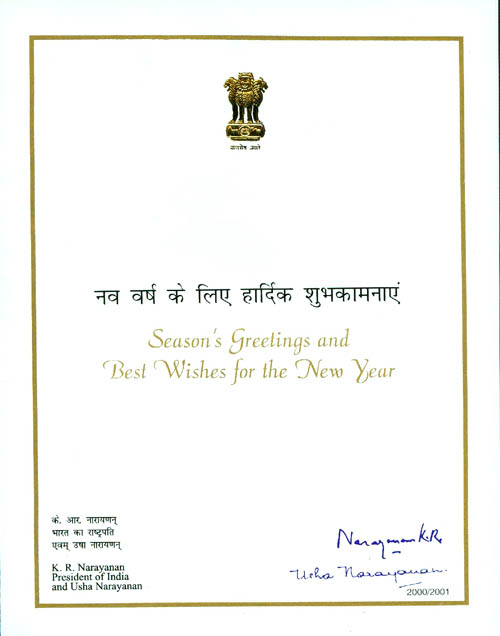 सत्यमेव जयते
नव वर्ष के लिए हार्दिक शुभकामनाएं
Season's Greetings and
Best Wishes for the New Year
के. आर. नारायणन्
भारत का राष्ट्रपति
एवम् उषा नारायणन्
K. R. Narayanan
President of India
and Usha Narayanan
Narayanan K.R.
Usha Narayanan.
2000/2001